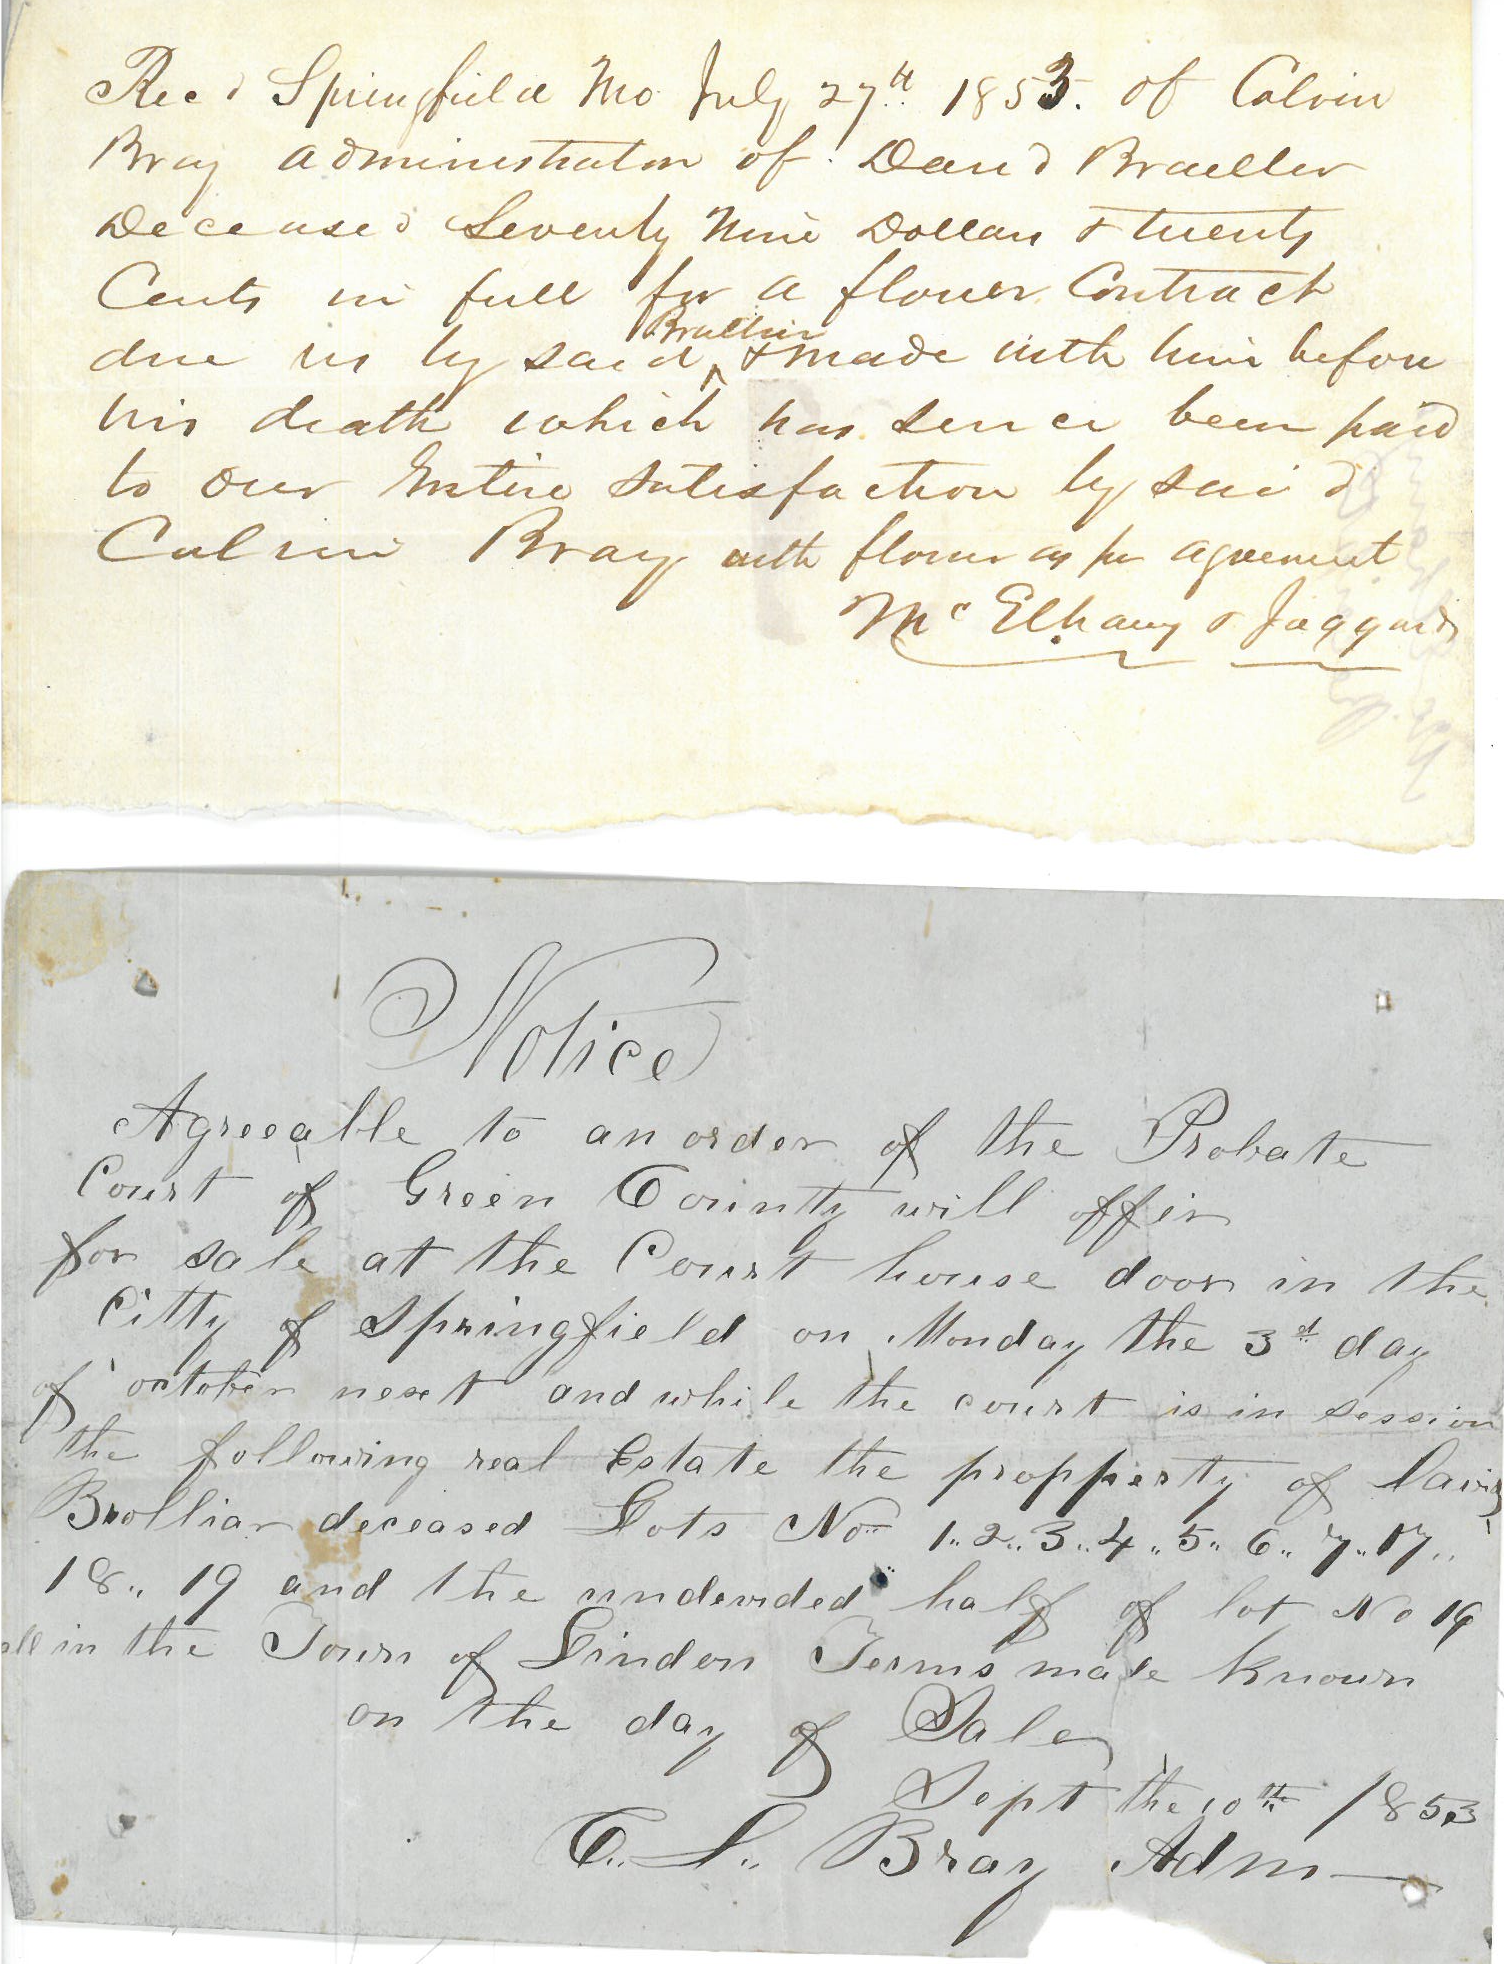 Rec'd Springfield Mo July 27th 1853. of Calvin
Bray administrator of David Braeller
Deceased Seventy Nine Dollars & twenty
Cents in full for a flower Contract
due us by said Braellier & made with him before
his death which has sence been paid
to our Entire satisfaction by said
Calvin Bray with flower as per agreement
McElhany & Jaggard
Notice
Agreeable to an order of the Probate
Court of Green County will offer
for sale at the Court house door in the
Citty of Springfield on Monday the 3d day
of october next and while the court is in session
the following real Estate the propperty of David
Brolliar deceased Lots Nos 1..2..3..4..5..6..7..17..
18.. 19 and the undevided half of lot No 19
all in the Town of Lindon Terms made known
on the day of Sale
Sept the 10th 1853
C.. L.. Bray Adm